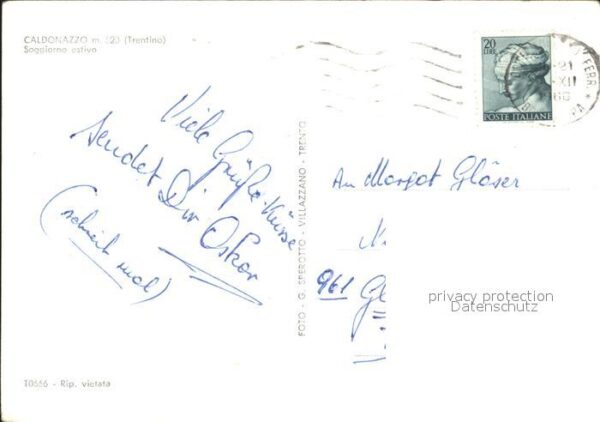 CALDONAZZO m. 520 (Trentino)
Soggiorno estivo
Viele Grüße + Küsse
sendet Dir Oskar
(schreib mal)
FOTO - G. SPEROTTO - VILLAZZANO - TRENTO
20
LIRE
POSTE ITALIANE
21
XII
An Margot Gläser
961
privacy protection
Datenschutz
T0556 - Rip. vietata